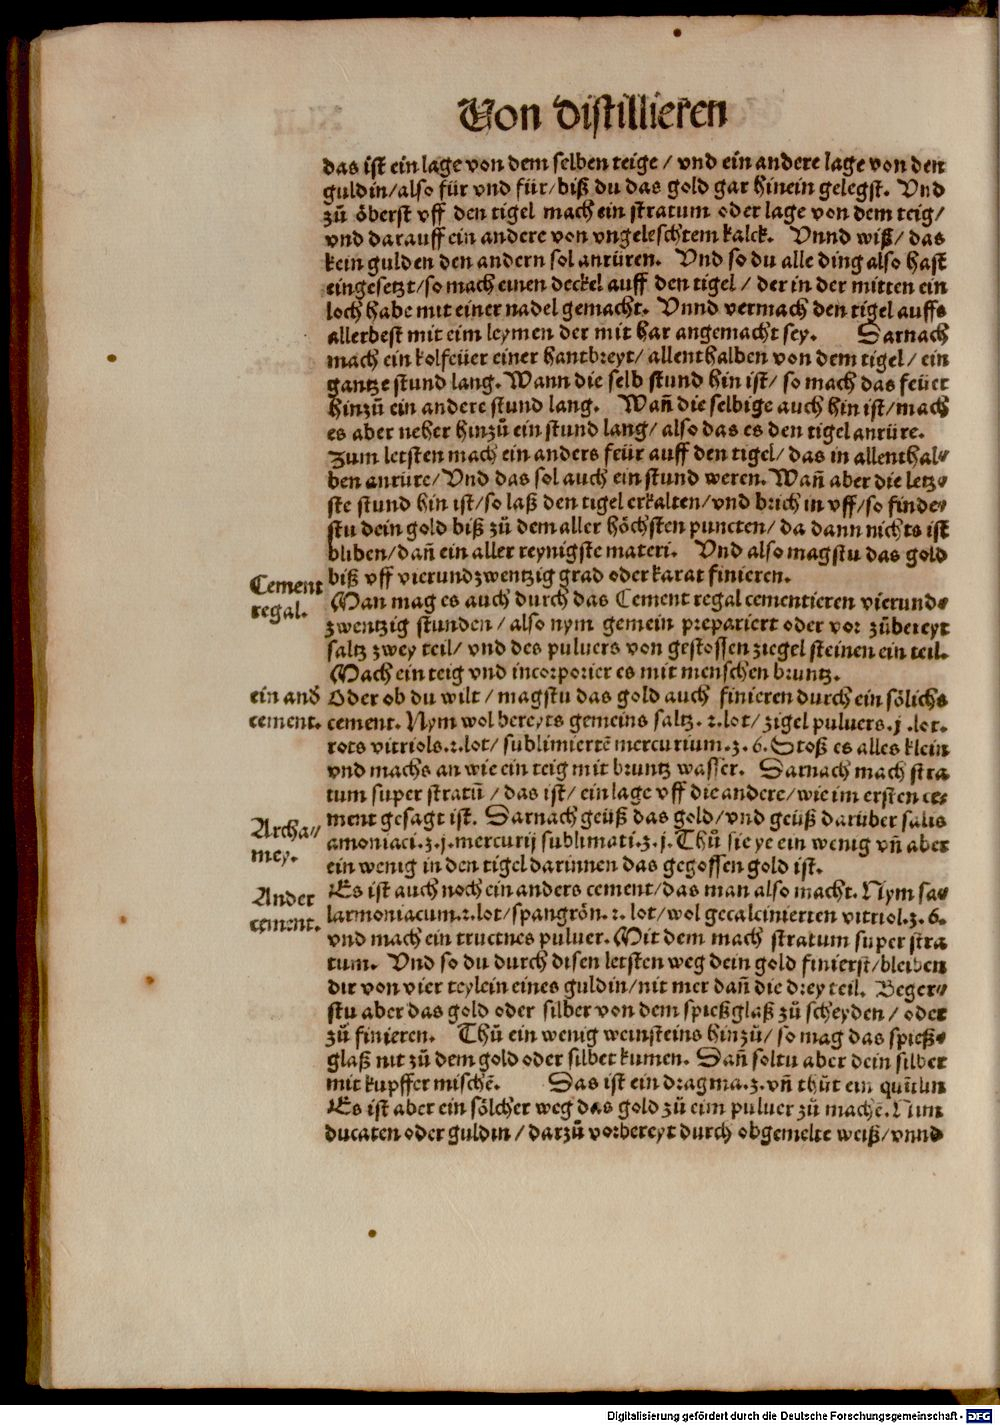 Von distillieren
das ist ein lage von dem selben teige / vnd ein andere lage von den
guldin/also für vnd für/biß du das gold gar hinein gelegst. Vnd
zů öberst vff den tigel mach ein stratum oder lage von dem teig/
vnd darauff ein andere von vngeleschtem kalck. Vnnd wiß/ das
kein gulden den andern sol anrüren. Vnd so du alle ding also hast
eingesetzt/so mach einen deckel auff den tigel / der in der mitten ein
loch habe mit einer nadel gemacht. Vnnd vermach den tigel auffs
allerbest mit eim leymen der mit har angemacht sey. Darnach
mach ein kolfeüer einer hantbreyt/ allenthalben von dem tigel/ ein
gantze stund lang. Wann die selb stund hin ist/ so mach das feüer
hinzů ein andere stund lang. Wañ die selbige auch hin ist/mach
es aber neher hinzů ein stund lang/ also das es den tigel anrüre.
Zum letsten mach ein anders feür auff den tigel/ das in allenthal⸗
ben anrüre/ Vnd das sol auch ein stund weren. Wañ aber die letz⸗
ste stund hin ist/so laß den tigel erkalten/vnd brich in vff/so finde⸗
stu dein gold biß zů dem aller höchsten puncten/ da dann nichts ist
bliben/dañ ein aller reynigste materi. Vnd also magstu das gold
biß vff vierundzwentzig grad oder karat finieren.
Cement
regal.
Man mag es auch durch das Cement regal cementieren vierund⸗
zwentzig stunden/ also nym gemein prepariert oder vor zůbereyt
saltz zwey teil/ vnd des puluers von gestossen ziegel steinen ein teil.
Mach ein teig vnd incorporier es mit menschen bruntz.
ein anđ
cement.
Oder ob du wilt / magstu das gold auch finieren durch ein sölichs
cement. Nym wol bereyts gemeins saltz. 2. lot/ zigel puluers. j. lot.
rots vitriols. 2. lot/ sublimiertē mercurium. ʒ. 6. Stoß es alles klein
vnd machs an wie ein teig mit bruntz wasser. Darnach mach stra
tum super stratū / das ist/ ein lage vff die andere/wie im ersten ce⸗
ment gesagt ist. Darnach geüß das gold/vnd geüß darüber salis
Archa⸗
mey.
amoniaci. ʒ. j. mercurij sublimati. ʒ. j. Thů sie ye ein wenig vñ aber
ein wenig in den tigel darinnen das gegossen gold ist.
Ander
cement.
Es ist auch noch ein anders cement/das man also macht. Nym sa⸗
larmoniacum. 2. lot/spangrön. 2. lot/wol gecalcinierten vitriol. ʒ. 6.
vnd mach ein tructnes puluer. Mit dem mach stratum super stra
tum. Vnd so du durch disen letsten weg dein gold finierst/bleiben
dir von vier teylein eines guldin/nit mer dañ die drey teil. Beger⸗
stu aber das gold oder silber von dem spießglaß zů scheyden / oder
zů finieren. Thů ein wenig weinsteins hinzů/ so mag das spieß⸗
glaß nit zů dem gold oder silber kumen. Dañ soltu aber dein silber
mit kupffer mischē. Das ist ein dragma. ʒ. vñ thůt ein quītlin
Es ist aber ein sölcher weg das gold zů eim puluer zů machē. Nim
ducaten oder guldin / darzů vorbereyt durch obgemelte weiß/vnnd
Digitalisierung gefördert durch die Deutsche Forschungsgemeinschaft - DFG